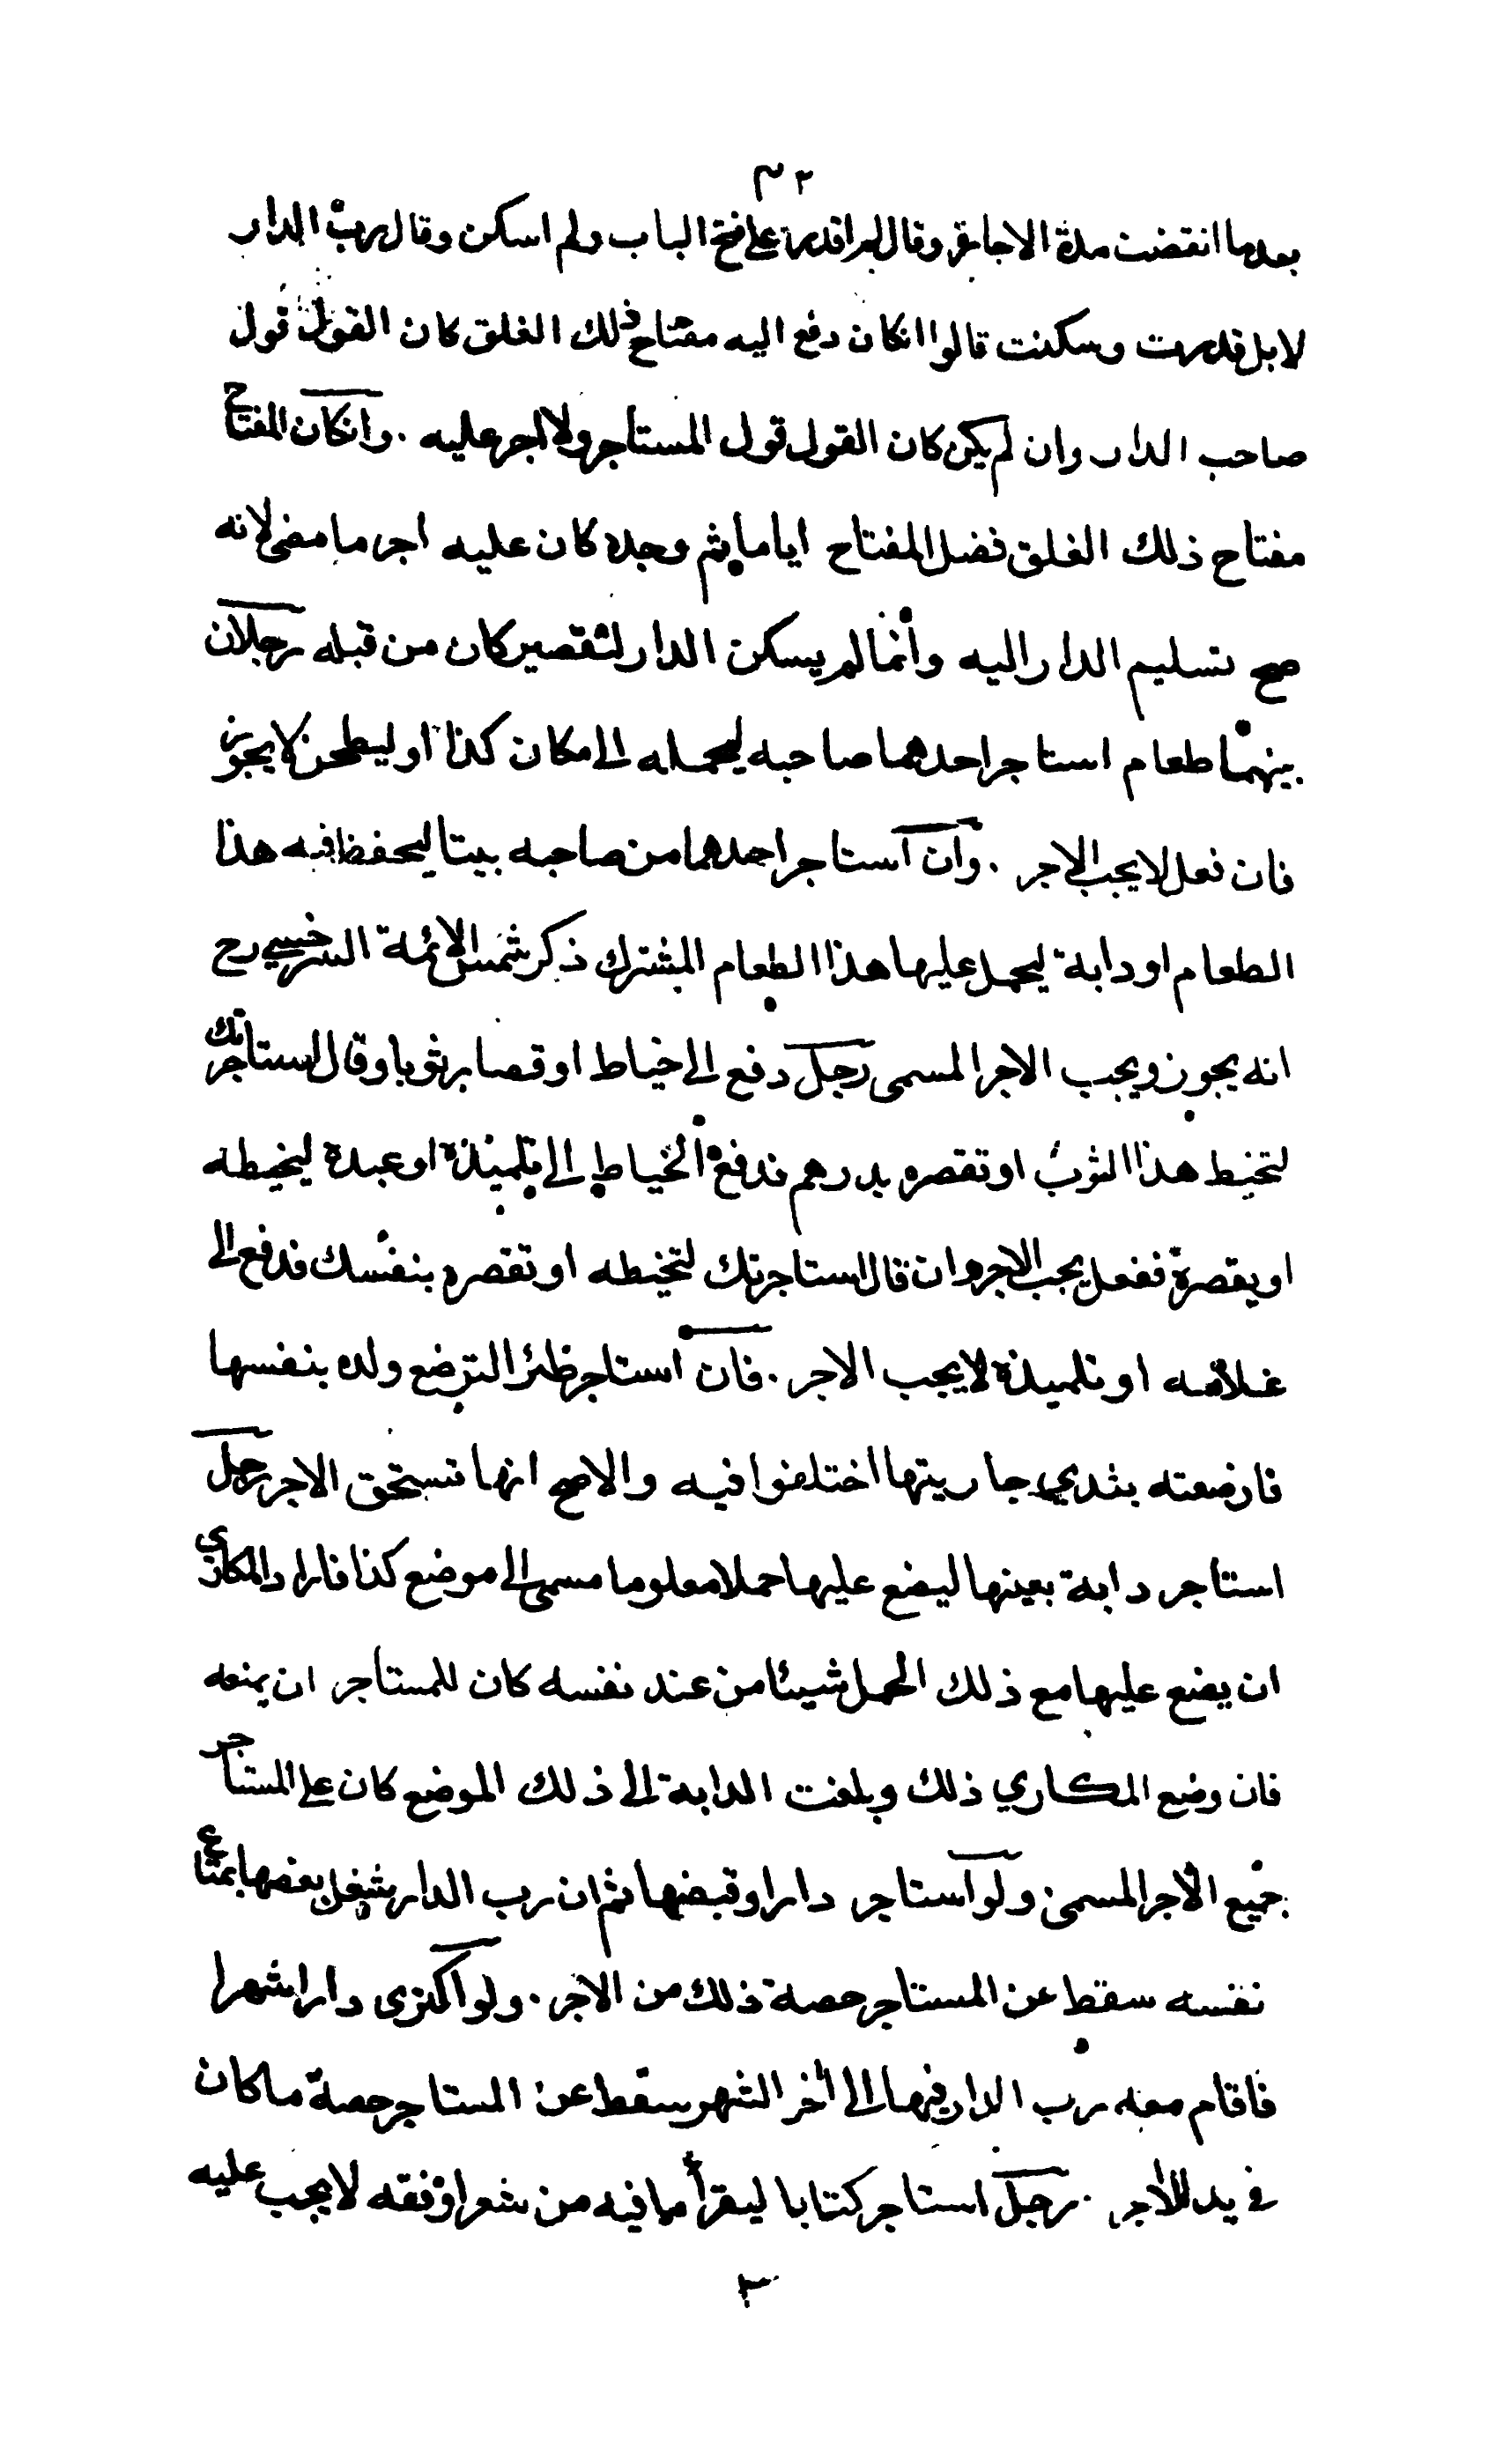 ٣٢
بعدما انقضت مدة الاجارة وقال لم اقدر على فتح الباب ولم اسكن وقال رب الدار
لا بل قدرت وسكنت قالوا انكان دفع اليه مفتاح ذلك الغلق كان القول قول
صاحب الدار وان لم يكن كان القول قول المستاجر ولا اجر عليه . وانكان المفتاح
مفتاح ذلك الغلق فضل المفتاح اياما ثم وجده كان عليه اجر ما مضى لانه
صح تسليم الدار اليه وانما لم يسكن الدار لتقصير كان من قبله رجلان
بينهما طعام استاجر احدهما صاحبه ليحمله الى مكان كذا او ليطحن لا يجوز
فان فعل لا يجب الاجر . وان استاجر احدهما من صاحبه بيتا ليحفظ فيه هذا
الطعام او دابة ليحمل عليها هذا الطعام المشترك ذكر شمس الائمة السرخسي رح
انه يجوز ويجب الاجر المسمى رجل دفع الى خياط او قصار ثوبا وقال استاجرتك
لتخيط هذا الثوب او تقصره بدرهم فدفع الخياط الى تلميذة او عبدة ليخيطه
او يقصرة ففعل يجب الاجر وان قال استاجرتك لتخيطه او تقصره بنفسك فدفع الى
غلامه او تلميذة لا يجب الاجر . فان استاجر ظئرا لترضع ولده بنفسها
فارضعته بثدي جاريتها اختلفوا فيه والاصح انها تستحق الاجر رجل
استاجر دابة بعينها ليضع عليها حملا معلوما مسمى الى موضع كذا فاراد المكاري
ان يضع عليها مع ذلك الحمل شيئا من عند نفسه كان للمستاجر ان يمنعه
فان وضع المكاري ذلك وبلغت الدابة الى ذلك الموضع كان على المستاجر
جميع الاجر المسمى ولو استاجر دارا وقبضها ثم ان رب الدار شغل بعضها بمتاع
نفسه سقط عن المستاجر حصة ذلك من الاجر . ولو اكترى دارا شهرا
فاقام معه رب الدار فيها الى اخر الشهر سقط عن المستاجر حصة ما كان
في يد الاجر . رجل استاجر كتابا ليقرأ ما فيه من شعر او فقه لا يجب عليه